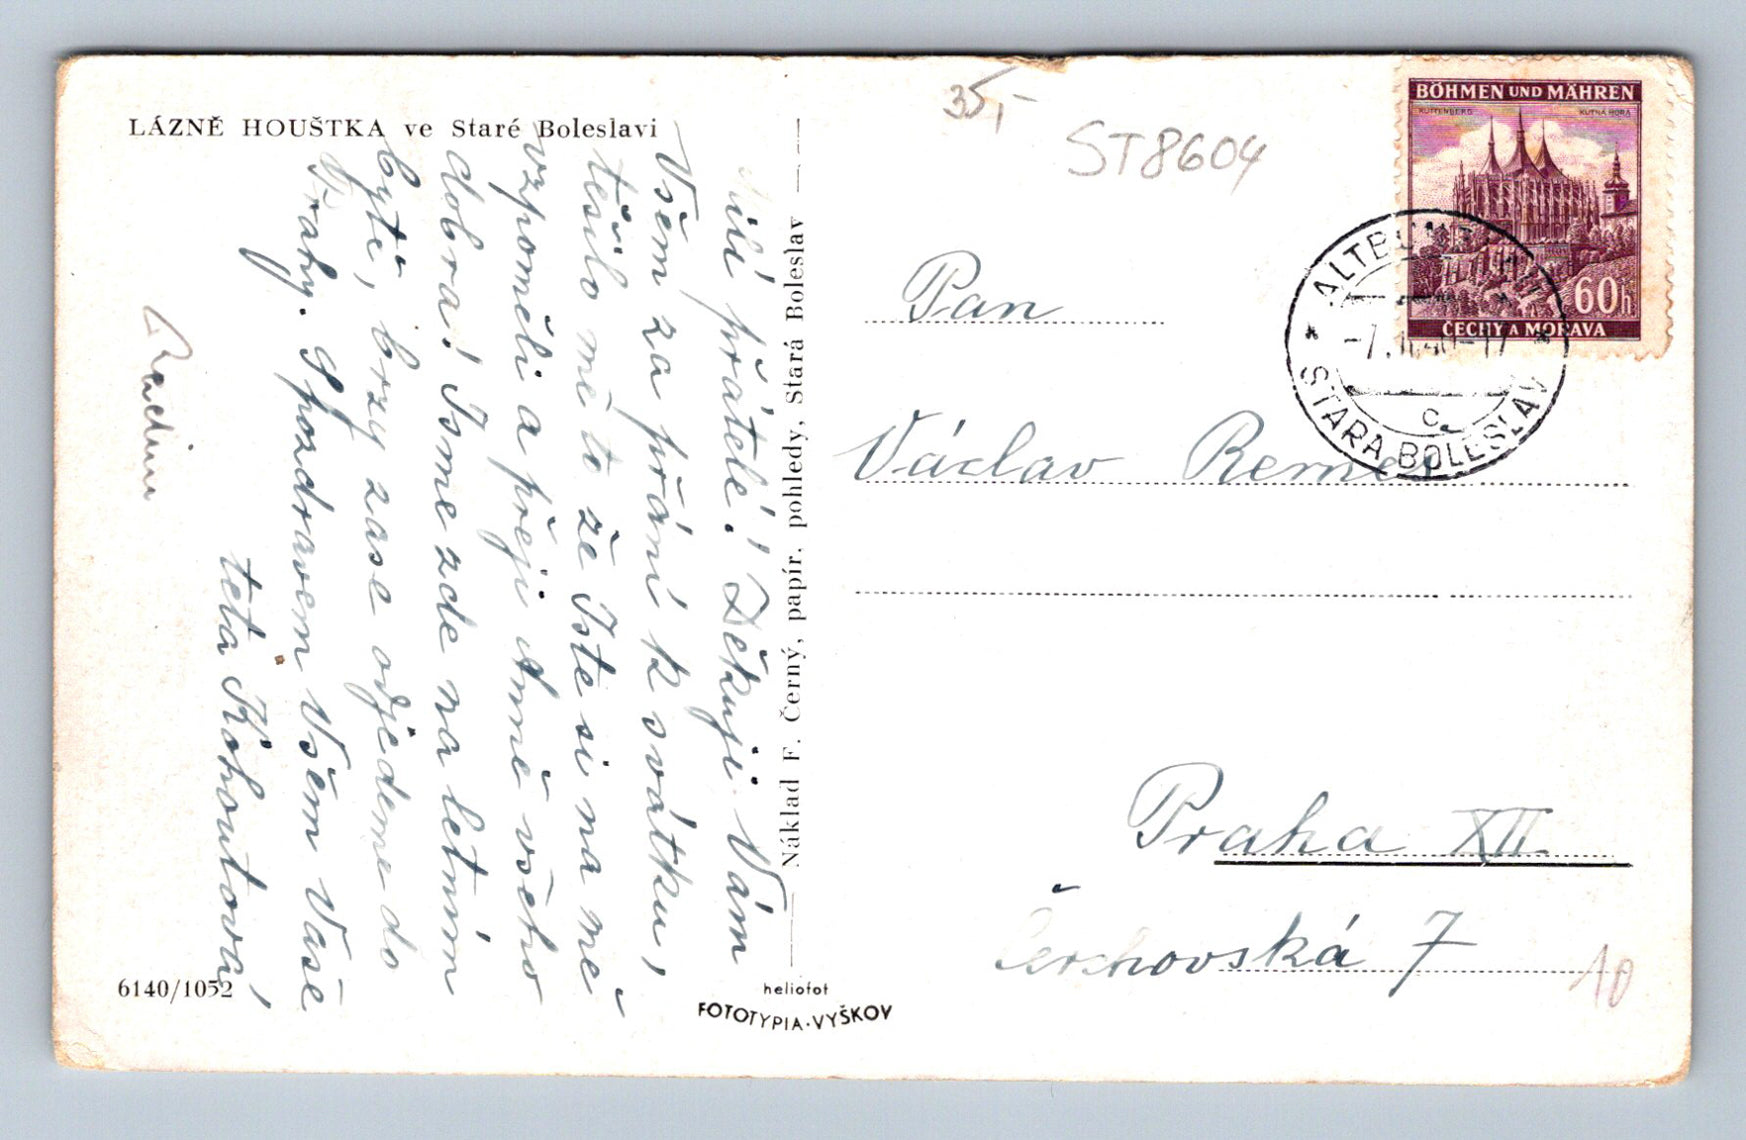 LÁZNĚ HOUŠTKA ve Staré Boleslavi
Milí přátelé! Děkuji Vám
Všem za přání k svátku,
těšilo mě to že Jste si na mě
vzpoměli a přeji Anně všeho
dobra! Jsme zde na letním
bytě, brzy zase odjedeme do
Prahy. S pozdravem Všem Vaše
teta Kohoutova,
6140/1052
Náklad F. Černý, papír. pohledy, Stará Boleslav
heliofot
FOTOTYPIA-VYŠKOV
35,-
ST8604
BÖHMEN UND MÄHREN
KUTTENBERG KUTNÁ HORA
60h
ČECHY A MORAVA
STARÁ BOLESLAV
Pan
Václav
Praha XII.
Čerchovská 7
10